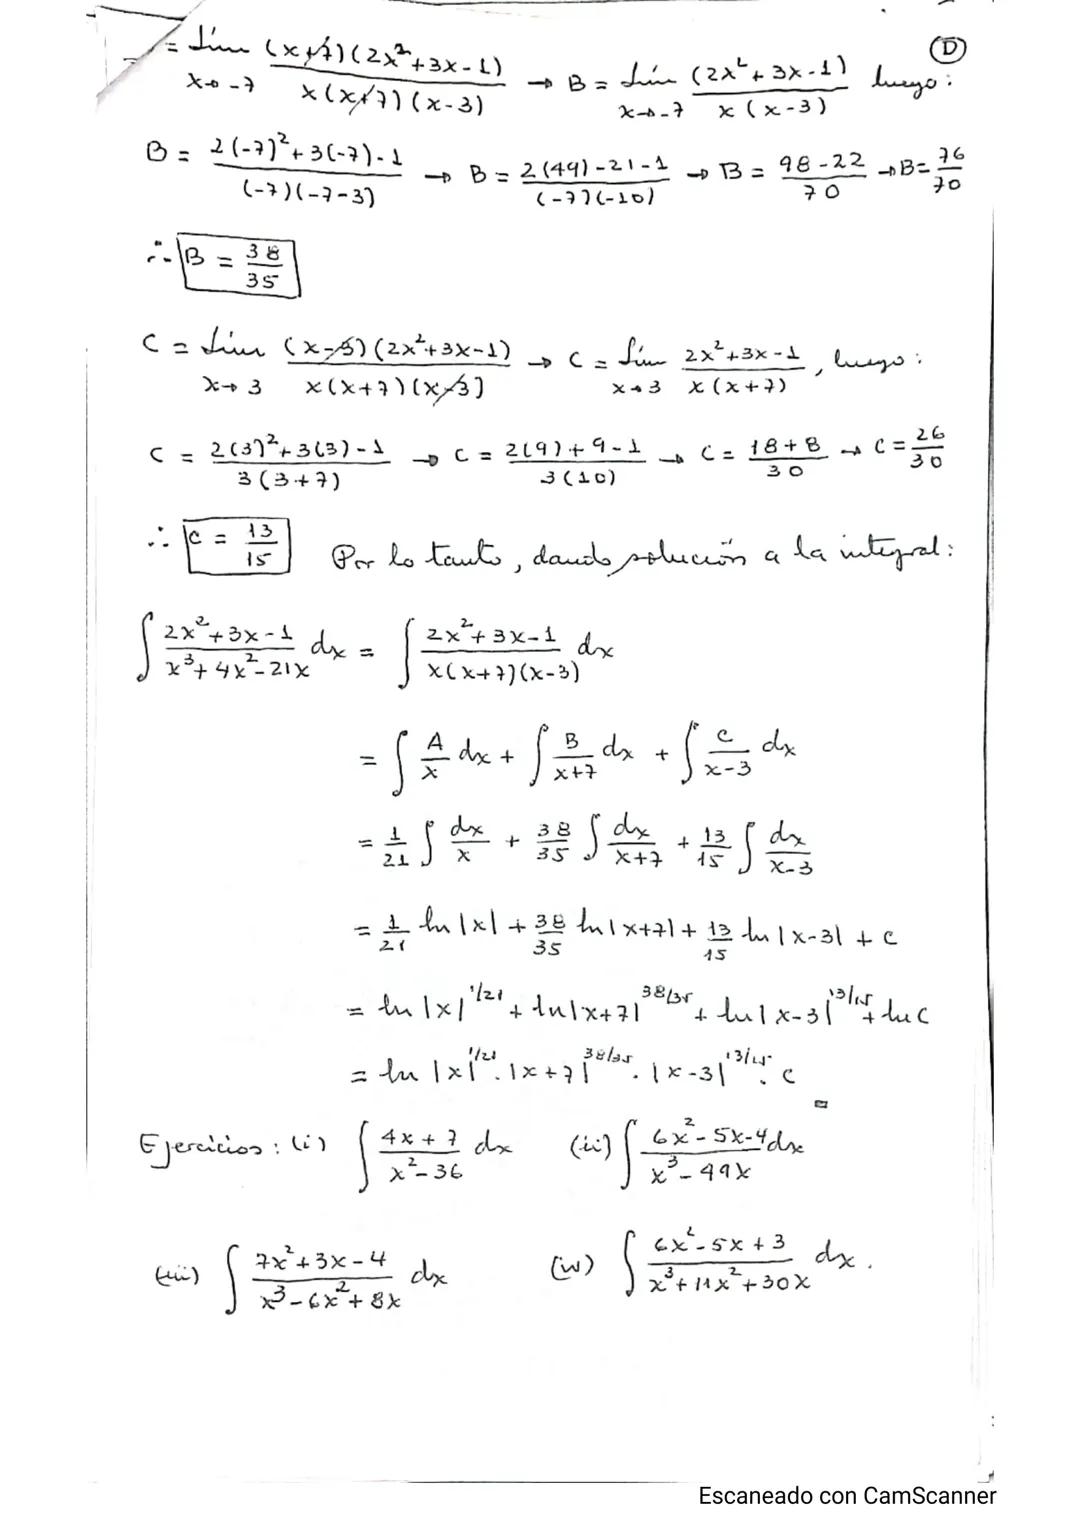 D
= Lím (x+7)(2x²+3x-1) / x(x+7)(x-3) → B = Lím (2x²+3x-1) / x(x-3) luego:
x→-7 x→-7
B = 2(-7)²+3(-7)-1 / (-7)(-7-3) → B = 2(49)-21-1 / (-7)(-10) → B = 98-22 / 70 → B = 76/70
∴ B = 38/35
C = Lím (x-3)(2x²+3x-1) / x(x+7)(x-3) → C = Lím 2x²+3x-1 / x(x+7), luego:
x→3 x→3
C = 2(3)²+3(3)-1 / 3(3+7) → C = 2(9)+9-1 / 3(10) → C = 18+8 / 30 → C = 26/30
∴ C = 13/15 Por lo tanto, dando solución a la integral:
∫ 2x²+3x-1 / x³+4x²-21x dx = ∫ 2x²+3x-1 / x(x+7)(x-3) dx
= ∫ A/x dx + ∫ B/x+7 dx + ∫ C/x-3 dx
= 1/21 ∫ dx/x + 38/35 ∫ dx/x+7 + 13/15 ∫ dx/x-3
= 1/21 ln|x| + 38/35 ln|x+7| + 13/15 ln|x-3| + c
= ln|x|^1/21 + ln|x+7|^38/35 + ln|x-3|^13/15 + ln c
= ln|x|^1/21 . |x+7|^38/35 . |x-3|^13/15 . c
Ejercicios: (i) ∫ 4x+7 / x²-36 dx (ii) ∫ 6x²-5x-4 / x³-49x dx
(iii) ∫ 7x²+3x-4 / x³-6x²+8x dx (iv) ∫ 6x²-5x+3 / x³+11x²+30x dx.
Escaneado con CamScanner